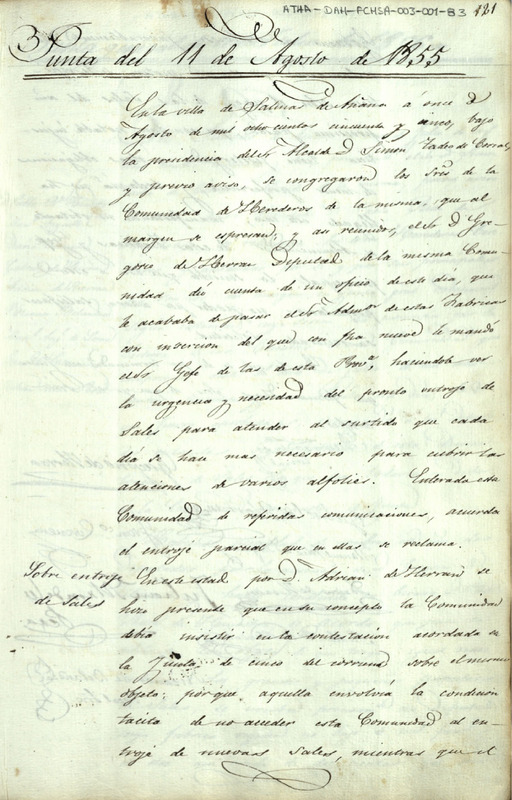 ATHA-DAH-FCHSA-003-001-B3 121
Junta del 11 de Agosto de 1855
En la villa de Salinas de Añana á once de
Agosto de mil ocho cientos cincuenta y cinco, bajo
la presidencia del Sr Alcalde D Simon Tadeo de Corral,
y previo aviso, se congregaron los Sres de la
Comunidad de Herederos de la misma, que al
margen se espresan; y asi reunidos, el Sr D Gre-
gorio de Herran Diputado de la misma Comu-
nidad dió cuenta de un oficio de este dia, que
le acababa de pasar el Sr Admor de estas Fabricas
con insercion del que con fha nueve le mandó
el Sr Gefe de las de esta Prova, haciendole ver
la urgencia y necesidad del pronto entroje de
Sales para atender al surtido que cada
dia se hace mas necesario para cubrir las
atenciones de varios alfolies. Enterada esta
Comunidad de referidas comunicaciones, acuerda
el entroje parcial que en ellas se reclama.
Sobre entroje de Sales
En este estado por Dn Adrian de Herran se
hizo presente que en su concepto la Comunidad
debia insistir en la contestacion acordada en
la Junta de cinco del corriente sobre el mismo
objeto; por que aquella envolvia la condicion
tacita de no acceder esta Comunidad al en-
troje de nuevas Sales, mientras que el